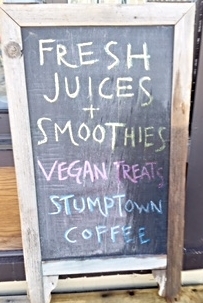 FRESH
JUICES
+
SMOOTHIES
VEGAN TREATS
STUMPTOWN
COFFEE